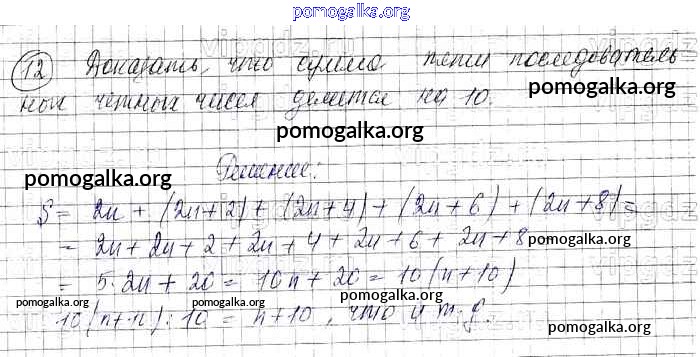 pomogalka.org
12 Доказать, что сумма пяти последователь
ных чётных чисел делится на 10.
pomogalka.org
pomogalka.org
Решение:
pomogalka.org
S = 2n + (2n+2) + (2n+4) + (2n+6) + (2n+8) =
= 2n + 2n + 2 + 2n + 4 + 2n + 6 + 2n + 8
pomogalka.org
= 5·2n + 20 = 10n + 20 = 10(n+10)
pomogalka.org
pomogalka.org
pomogalka.org
: 10 = n+10, что и т.д.
pomogalka.org